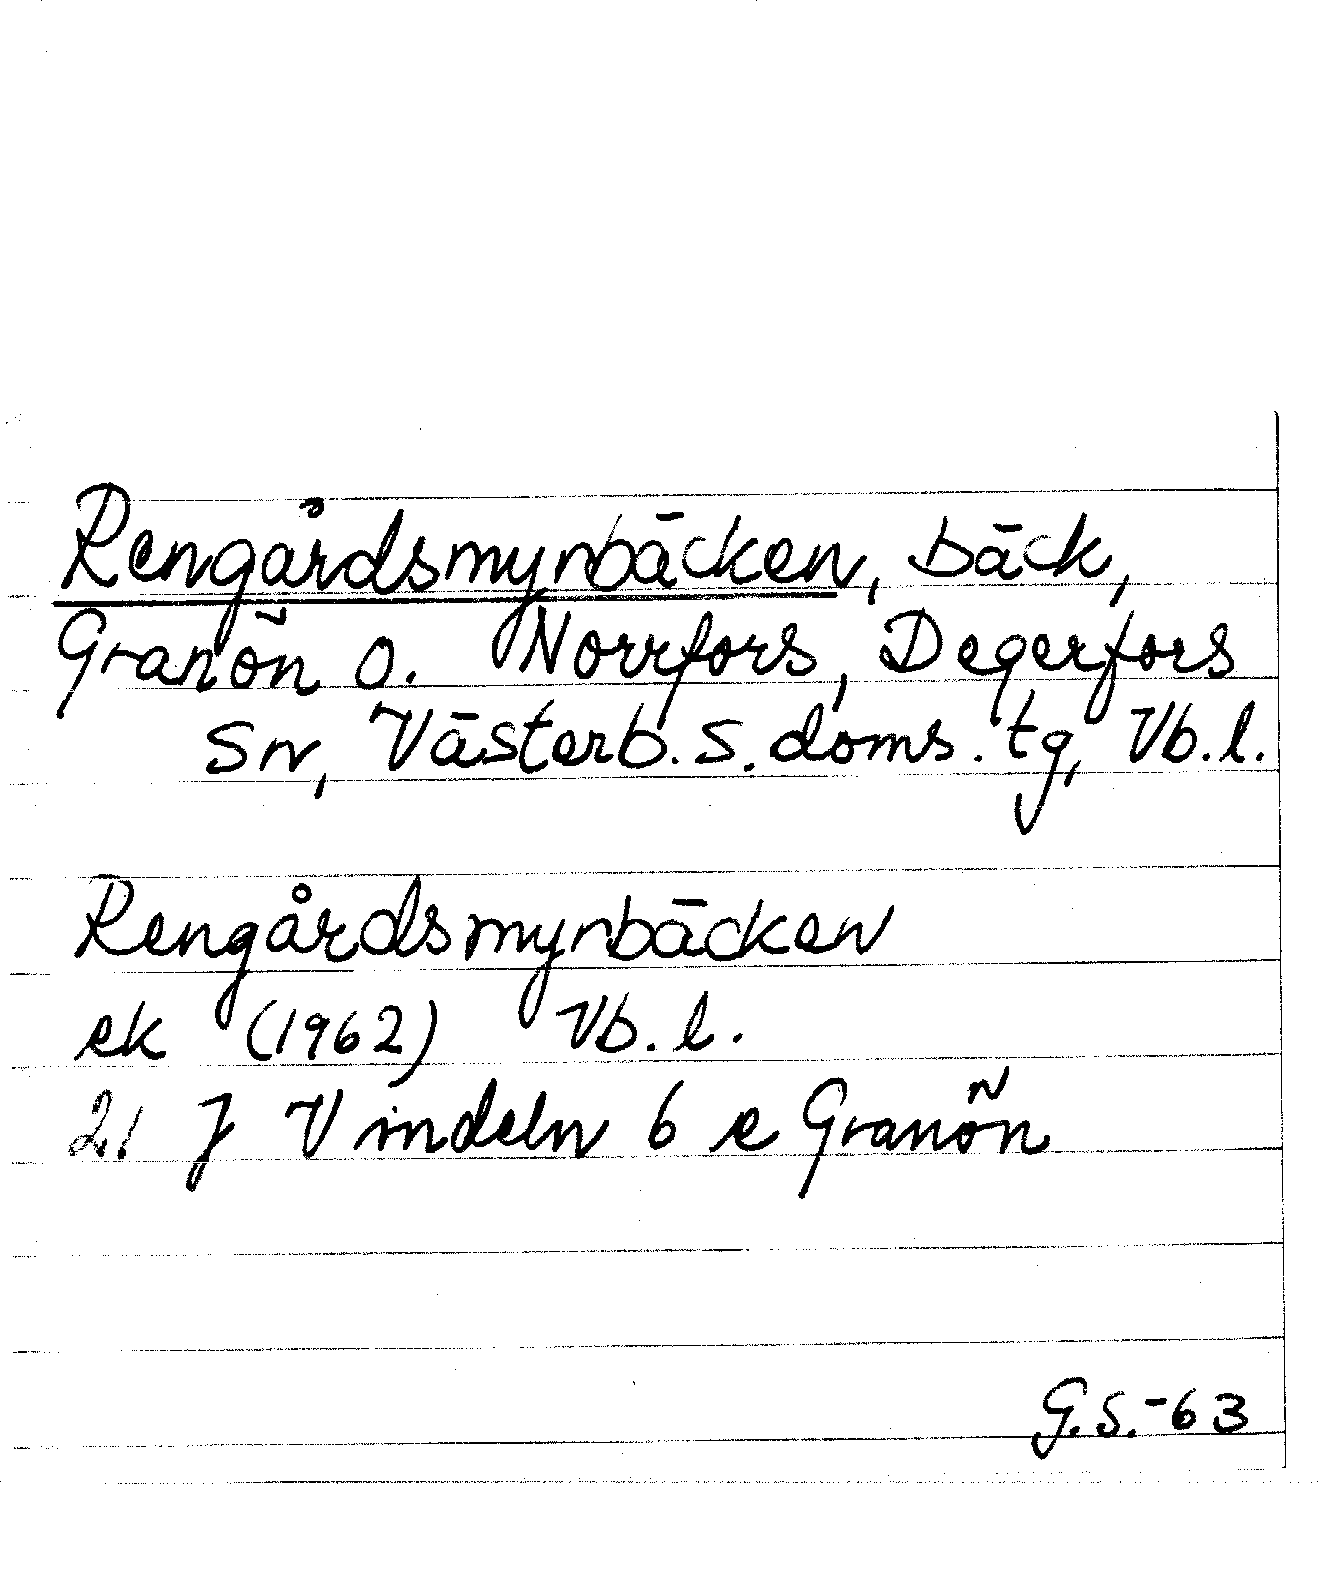 Rengårdsmynbäcken, bäck,
Granön o. Norrfors, Degerfors
sn, Västerb. s. doms. tg, Vb. l.
Rengårdsmynbäcken
ek (1962) Vb. l.
21 J Vindeln 6 e Granön
G.S.-63